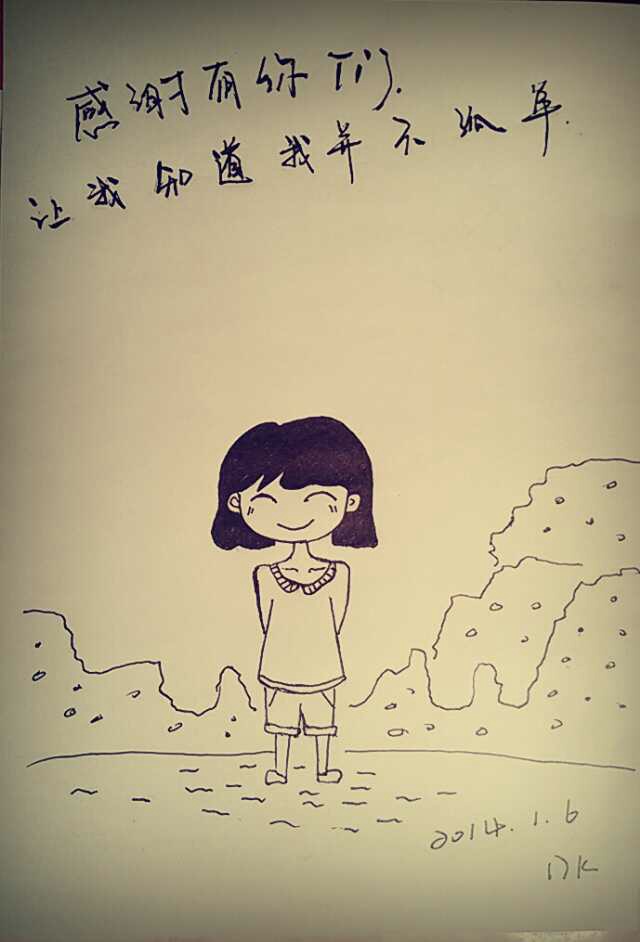 感谢有你们.
让我知道我并不孤单.
2014.1.6
DK